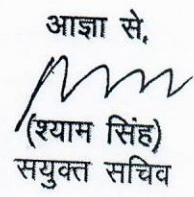 आज्ञा से,
(श्याम सिंह)
सयुक्त सचिव